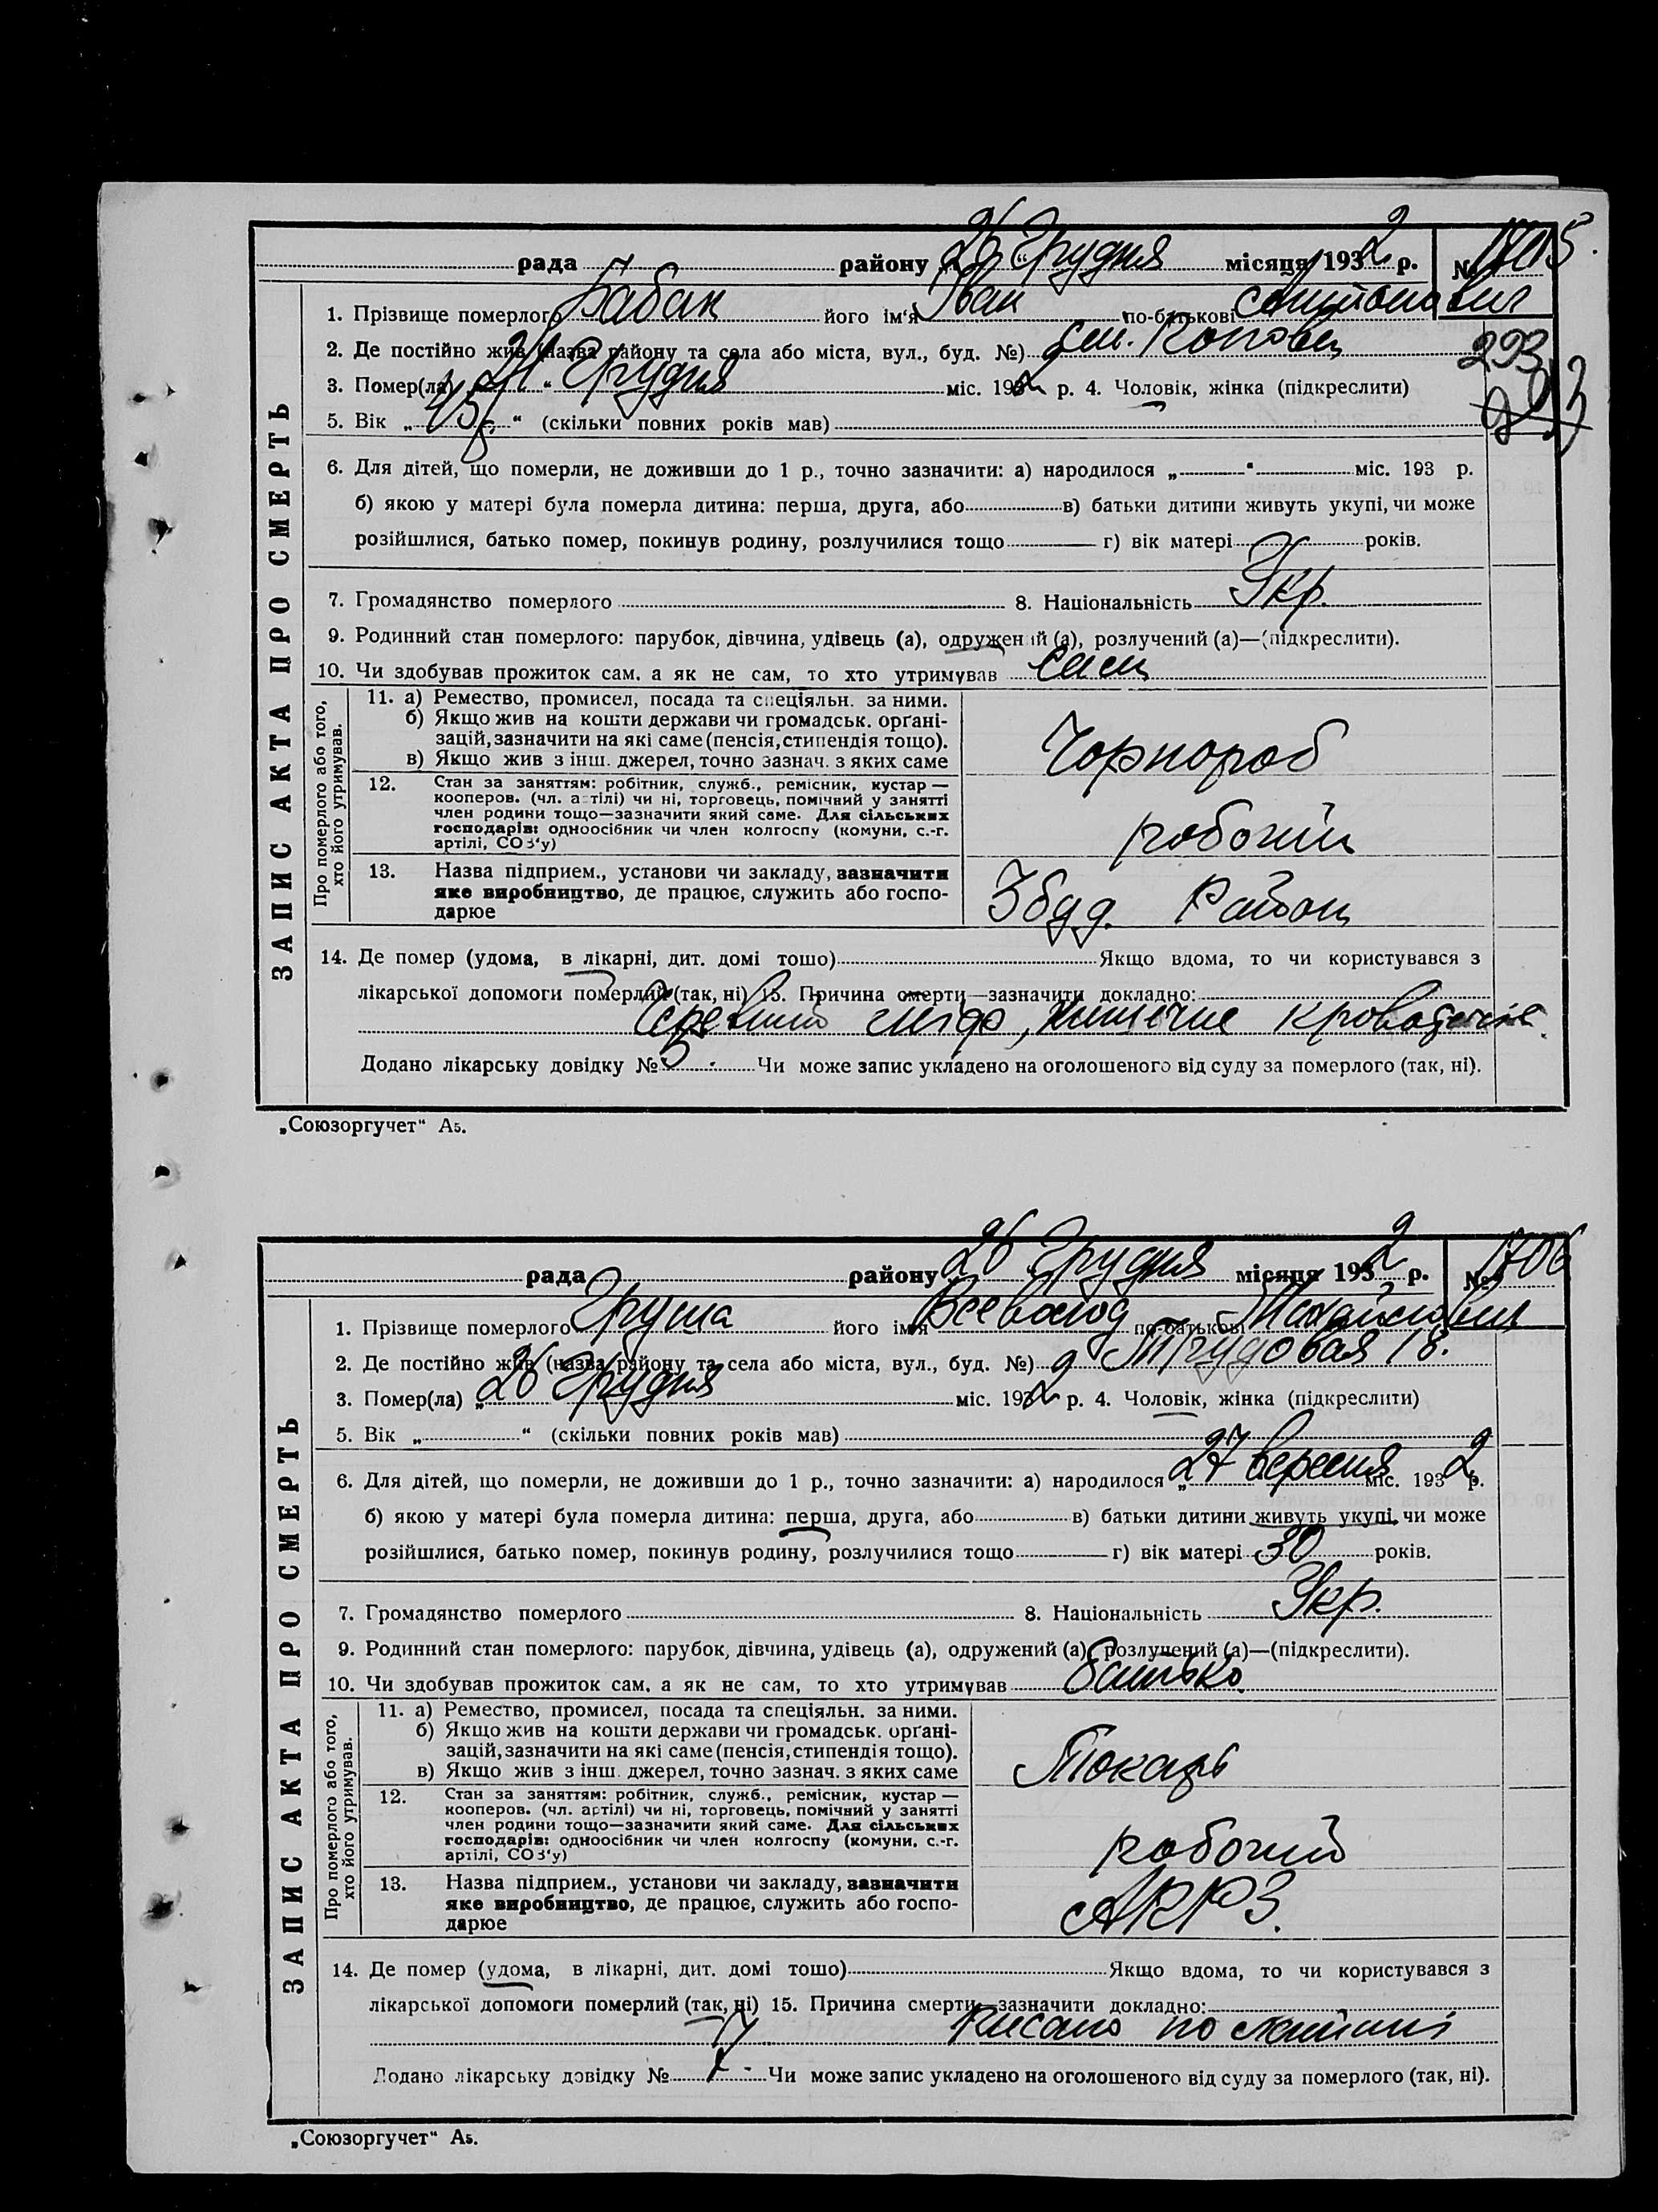 рада району 26 Грудня місяця 1932 р. № 1705.
1. Прізвище померлого Бабак його ім'я Іван по-батькові
2. Де постійно жив (назва району та села або міста, вул., буд. №)
293
3. Помер(ла) „ Грудня міс. 1932 р. 4. Чоловік, жінка (підкреслити)
5. Вік „ 45 “ (скільки повних років мав)
6. Для дітей, що померли, не доживши до 1 р., точно зазначити: а) народилося „ “ міс. 193 р.
б) якою у матері була померла дитина: перша, друга, або в) батьки дитини живуть укупі, чи може
розійшлися, батько помер, покинув родину, розлучилися тощо г) вік матері років.
7. Громадянство померлого 8. Національність Укр.
9. Родинний стан померлого: парубок, дівчина, удівець (а), одружений (а), розлучений (а)—(підкреслити).
10. Чи здобував прожиток сам, а як не сам, то хто утримував сам
ЗАПИС АКТА ПРО СМЕРТЬ
Про померлого або того,
хто його утримував.
11. а) Ремество, промисел, посада та спеціяльн. за ними.
б) Якщо жив на кошти держави чи громадськ. орґані-
зацій, зазначити на які саме (пенсія, стипендія тощо).
в) Якщо жив з інш. джерел, точно зазнач. з яких саме
Чорнороб
12. Стан за заняттям: робітник, служб., ремісник, кустар —
кооперов. (чл. артілі) чи ні, торговець, помічний у занятті
член родини тощо—зазначити який саме. Для сільських
господарів: одноосібник чи член колгоспу (комуни, с.-г.
артілі, СОЗ'у)
робочий
13. Назва підприєм., установи чи закладу, зазначити
яке виробництво, де працює, служить або госпо-
дарюе
Збуд. Район
14. Де помер (удома, в лікарні, дит. домі тощо) Якщо вдома, то чи користувався з
лікарської допомоги померлий (так, ні) 15. Причина смерти—зазначити докладно:
тиф,
Додано лікарську довідку № 5 Чи може запис укладено на оголошеного від суду за померлого (так, ні).
„Союзоргучет“ А5.
рада району 26 Грудня місяця 1932 р. № 1706
1. Прізвище померлого Груша його ім'я Всеволод по-батькові Михайлович
2. Де постійно жив (назва району та села або міста, вул., буд. №) Трудовая 18.
3. Помер(ла) „ 26 Грудня міс. 1932 р. 4. Чоловік, жінка (підкреслити)
5. Вік „ “ (скільки повних років мав)
6. Для дітей, що померли, не доживши до 1 р., точно зазначити: а) народилося „ 27 вересня міс. 1932 р.
б) якою у матері була померла дитина: перша, друга, або в) батьки дитини живуть укупі, чи може
розійшлися, батько помер, покинув родину, розлучилися тощо г) вік матері 30 років.
7. Громадянство померлого 8. Національність Укр.
9. Родинний стан померлого: парубок, дівчина, удівець (а), одружений (а), розлучений (а)—(підкреслити).
10. Чи здобував прожиток сам, а як не сам, то хто утримував батько
ЗАПИС АКТА ПРО СМЕРТЬ
Про померлого або того,
хто його утримував.
11. а) Ремество, промисел, посада та спеціяльн. за ними.
б) Якщо жив на кошти держави чи громадськ. орґані-
зацій, зазначити на які саме (пенсія, стипендія тощо).
в) Якщо жив з інш. джерел, точно зазнач. з яких саме
Токарь
12. Стан за заняттям: робітник, служб., ремісник, кустар —
кооперов. (чл. артілі) чи ні, торговець, помічний у занятті
член родини тощо—зазначити який саме. Для сільських
господарів: одноосібник чи член колгоспу (комуни, с.-г.
артілі, СОЗ'у)
робочий
13. Назва підприєм., установи чи закладу, зазначити
яке виробництво, де працює, служить або госпо-
дарюе
АРРЗ.
14. Де помер (удома, в лікарні, дит. домі тощо) Якщо вдома, то чи користувався з
лікарської допомоги померлий (так, ні) 15. Причина смерти—зазначити докладно:
Додано лікарську довідку № 7 Чи може запис укладено на оголошеного від суду за померлого (так, ні).
„Союзоргучет“ А5.